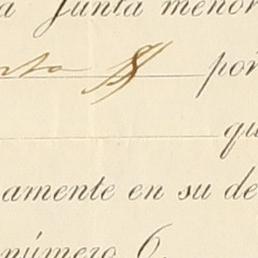 a Junta menor
por
qu
amente en su de
número 6.